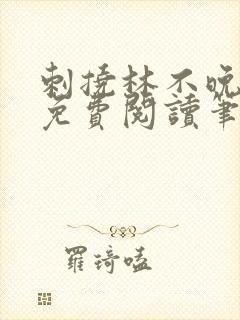 刺撓林不晚
免費閱讀筆
羅琦嗑